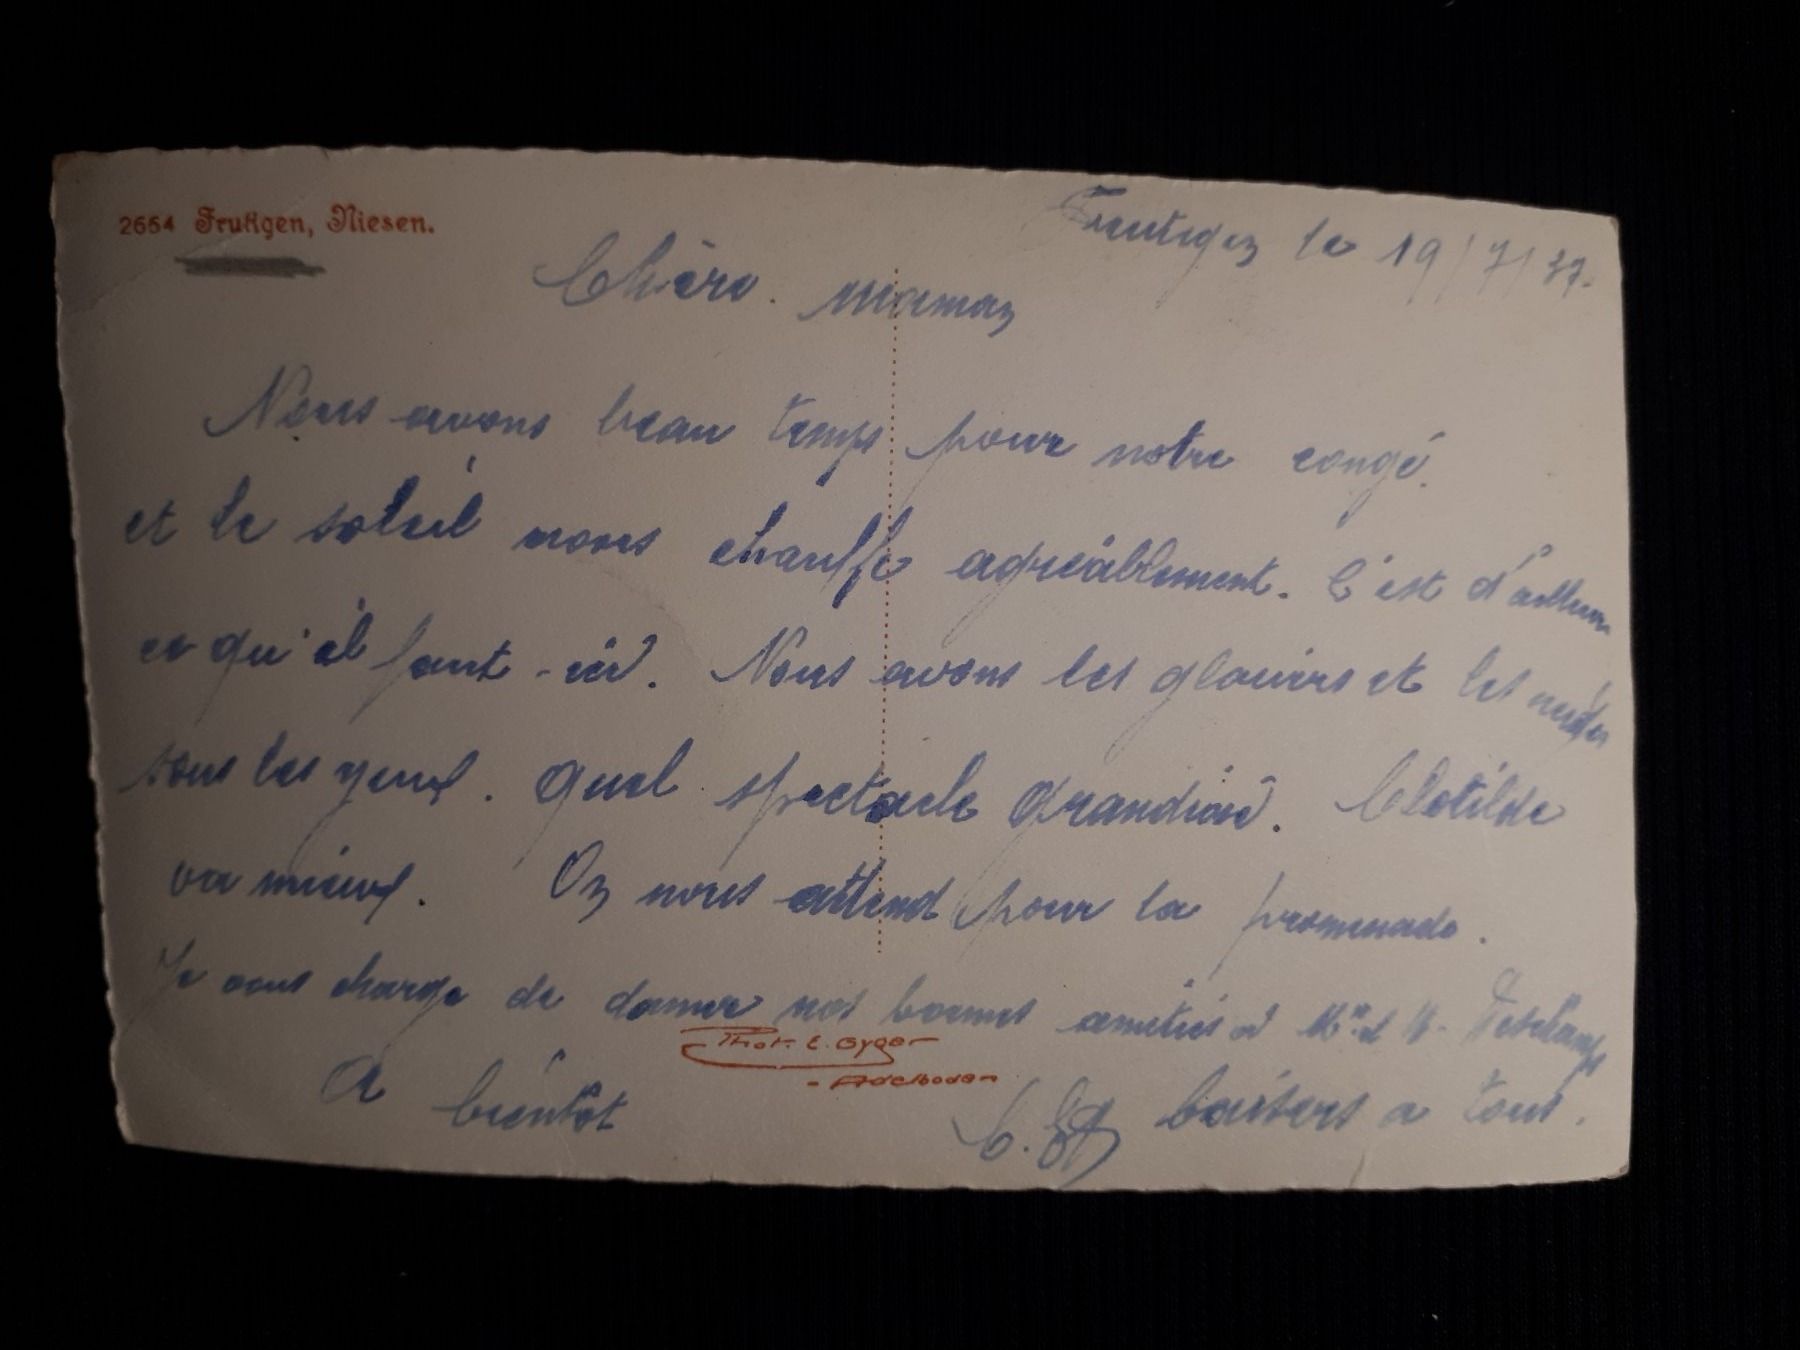 2664 Frutigen, Niesen.
Frutigen le 19/7/37.
Chère maman
Nous avons beau temps pour notre congé.
et le soleil nous chauffe agréablement. C'est d'ailleurs
ce qu'il faut ici. Nous avons les glaciers et les neiges
sous les yeux. Quel spectacle grandiose. Clotilde
va mieux. On nous attend pour la promenade.
Je vous charge de donner nos bonnes amitiés à Mme et M. Deschamps
Phot. E. Gyger
- Adelboden -
A bientôt
baisers a tous.